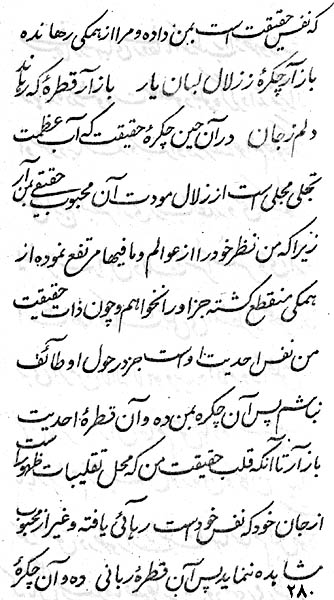 که نفس حقیقت است بمن داده و مرا از همکی رهانده
باز آر چکرهٔ ز زلال لبان یار باز آر قطرهٔ که رهاند
دلم ز جان در آن حین چکرهٔ حقیقت که آب عظمت
تجلی مجلی است از زلال مودت آن محبوب حقیقی بمن آر
زیرا که من نظر خود را از عوالم و ما فیها مرتفع نموده از
همکی منقطع کشته جز او را نخواهم و چون ذات حقیقت
من نفس احدیت او است جز در حول او طائف
نباشم پس آن چکره بمن ده و آن قطرهٔ احدیت
باز آر تا آنکه قلب حقیقت من که محل تقلیبات ظهورات است
از جان خود که نفس خود است رهائی یافته و غیر از محبوب
مشاهده ننماید پس آن قطرهٔ ربانی ده و آن چکرهٔ
۲۸۰